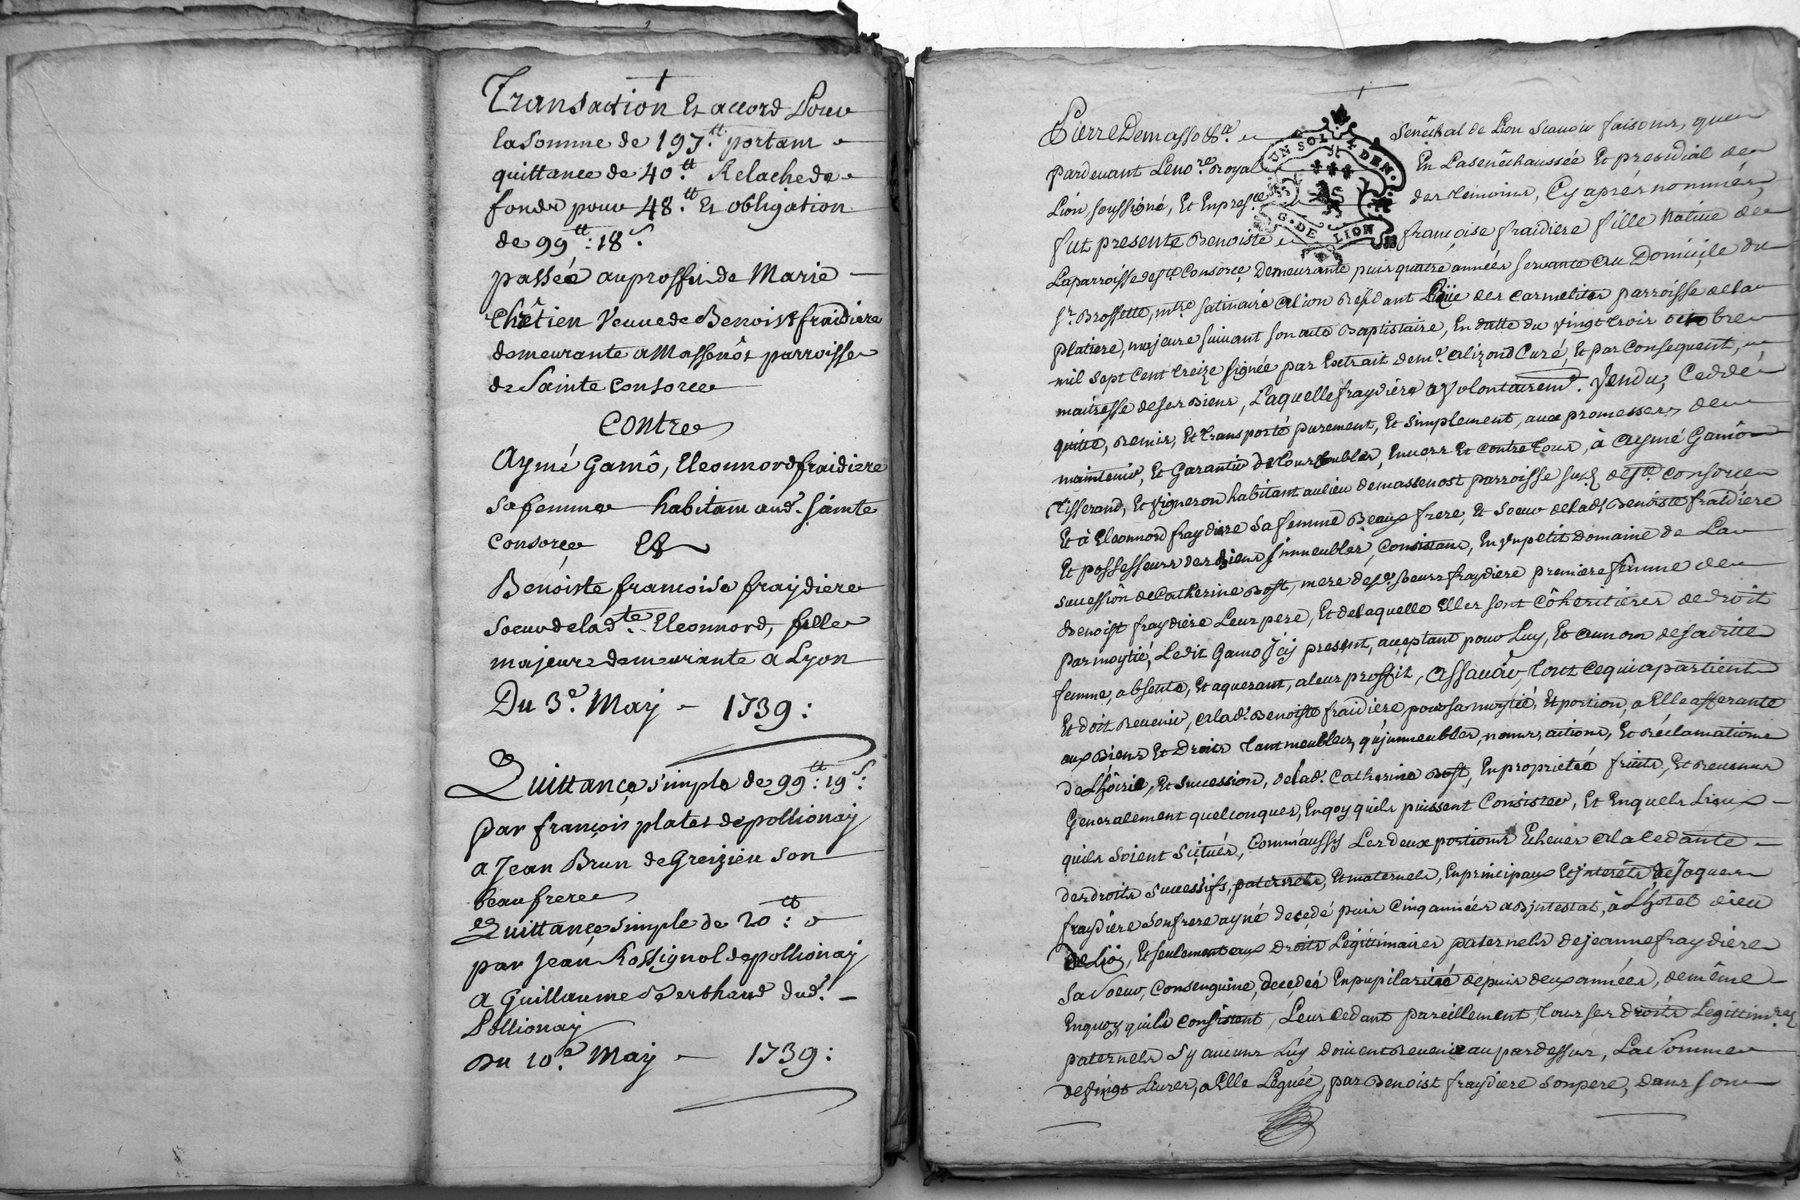 Transaction Et accord Pour
la Somme de 197.tt portant
quittance de 40.tt Relache de
fonds pour 48.tt Et obligation
de 99tt: 18s.
passée au proffit de Marie
Chrêtien Veuve de Benoist fraidiere
demeurante a Massenôt parroisse
de Sainte Consorce
Contre
Aymé Gamô, Eleonnord fraidiere
sa femme habitant aud. Sainte
Consorce Et
Benoiste francoise fraydiere
soeur de lad.te Eleonnord, fille
majeure demeurante a Lyon
Du 3.e May - 1739:
Quittance simple de 99tt: 19s.
par françois plates de pollionay
a Jean Brun de Greizieu son
beaufrere
Quittance simple de 20tt:
par Jean Rossignol de pollionay
a Guillaume Berthaud dud.
Pollionay
Du 10.e May - 1739:
Pierre Demasso &.a Senêchal de Lion Scavoir faisons, que
UN SOL 4 DEN.
G. DE LION
pardevant Le no.re royal En La senêchaussée Et presidial de
Lion soussigné, Et En pres.ce des temoins, Cy aprés nommés,
fut presente Benoiste françoise fraidiere fille Native de
La parroisse de s.te Consorce Demeurante puis quatre années servante au Domicile du
s.r Brossette, m.tre satinaire a Lion Residant Rüe des Carmelites parroisse de la
platiere, majeure suivant son acte Baptistaire, En datte du vingt trois octobre
mil sept Cent treize signée par Extrait de m.r alizond Curé, Et par Consequent,
maitresse de ses Biens, Laquelle fraydiére a volontairem.t Vendu, Ceddé,
quitté, Remis, Et transporté purement, Et simplement, aux promesses de
maintenir, Et Garantir de tous troubles, Envers Et contre tous, à aymé Gamô
Tisserand, Et Vigneron habitant au lieu de massenost parroisse de s.te Consorce
Et à Eleonnord fraydiere sa femme Beaux frere, Et soeur de lad. Benoiste fraidiére
Et possesseurs des Biens jmmeubles Consistans, En un petit domaine de La
succession de Catherine Bost, mere desd. soeurs fraydiere premiere femme de
Benoist fraydiere Leur pere, Et de laquelle Elles sont Côheritieres de droit
par moytié, Ledit Gamo jcy present, acceptant pour Luy, Et au nom de sa ditte
femme, absente, Et aquerant, a leur proffit, Assavoir, tout ce qui apartient
Et doit Revenir, a lad. Benoiste fraidiere, pour sa moytié, Et portion, a Elle afferante
aux Biens Et Droits tant meubles, qu'jmmeubles, noms, actions, Et réclamations
de L'hoirie, Et succession, de lad. Catherine Bost, En proprieté fruits, Et revenus
Generalement quelconques, En qoy quils puissent Consister, Et En quels Lieux
quils soient scitués, Comm'aussy Les deux portions Echeues a la Cedante
des droits successifs, paternels, Et maternels, En principaux Et jnterêts de Jaques
fraydiére son frere ayné decedé puis cinq années ab jntestat, à L'hotel dieu
de Lion, Et seulement aux droits Legittimaires paternels de jeanne fraydiére
sa soeur, Consenguine, decedée En pupilarité depuis deux années, de même
En quoy quils Consistent, Leur Cedant pareillement, tous ses droits Legittim.res
paternels sy aucuns Luy doivent Revenir au par dessus, La somme
de vingt Livres, a Elle Léguée, par Benoist fraydiere son pere, dans son